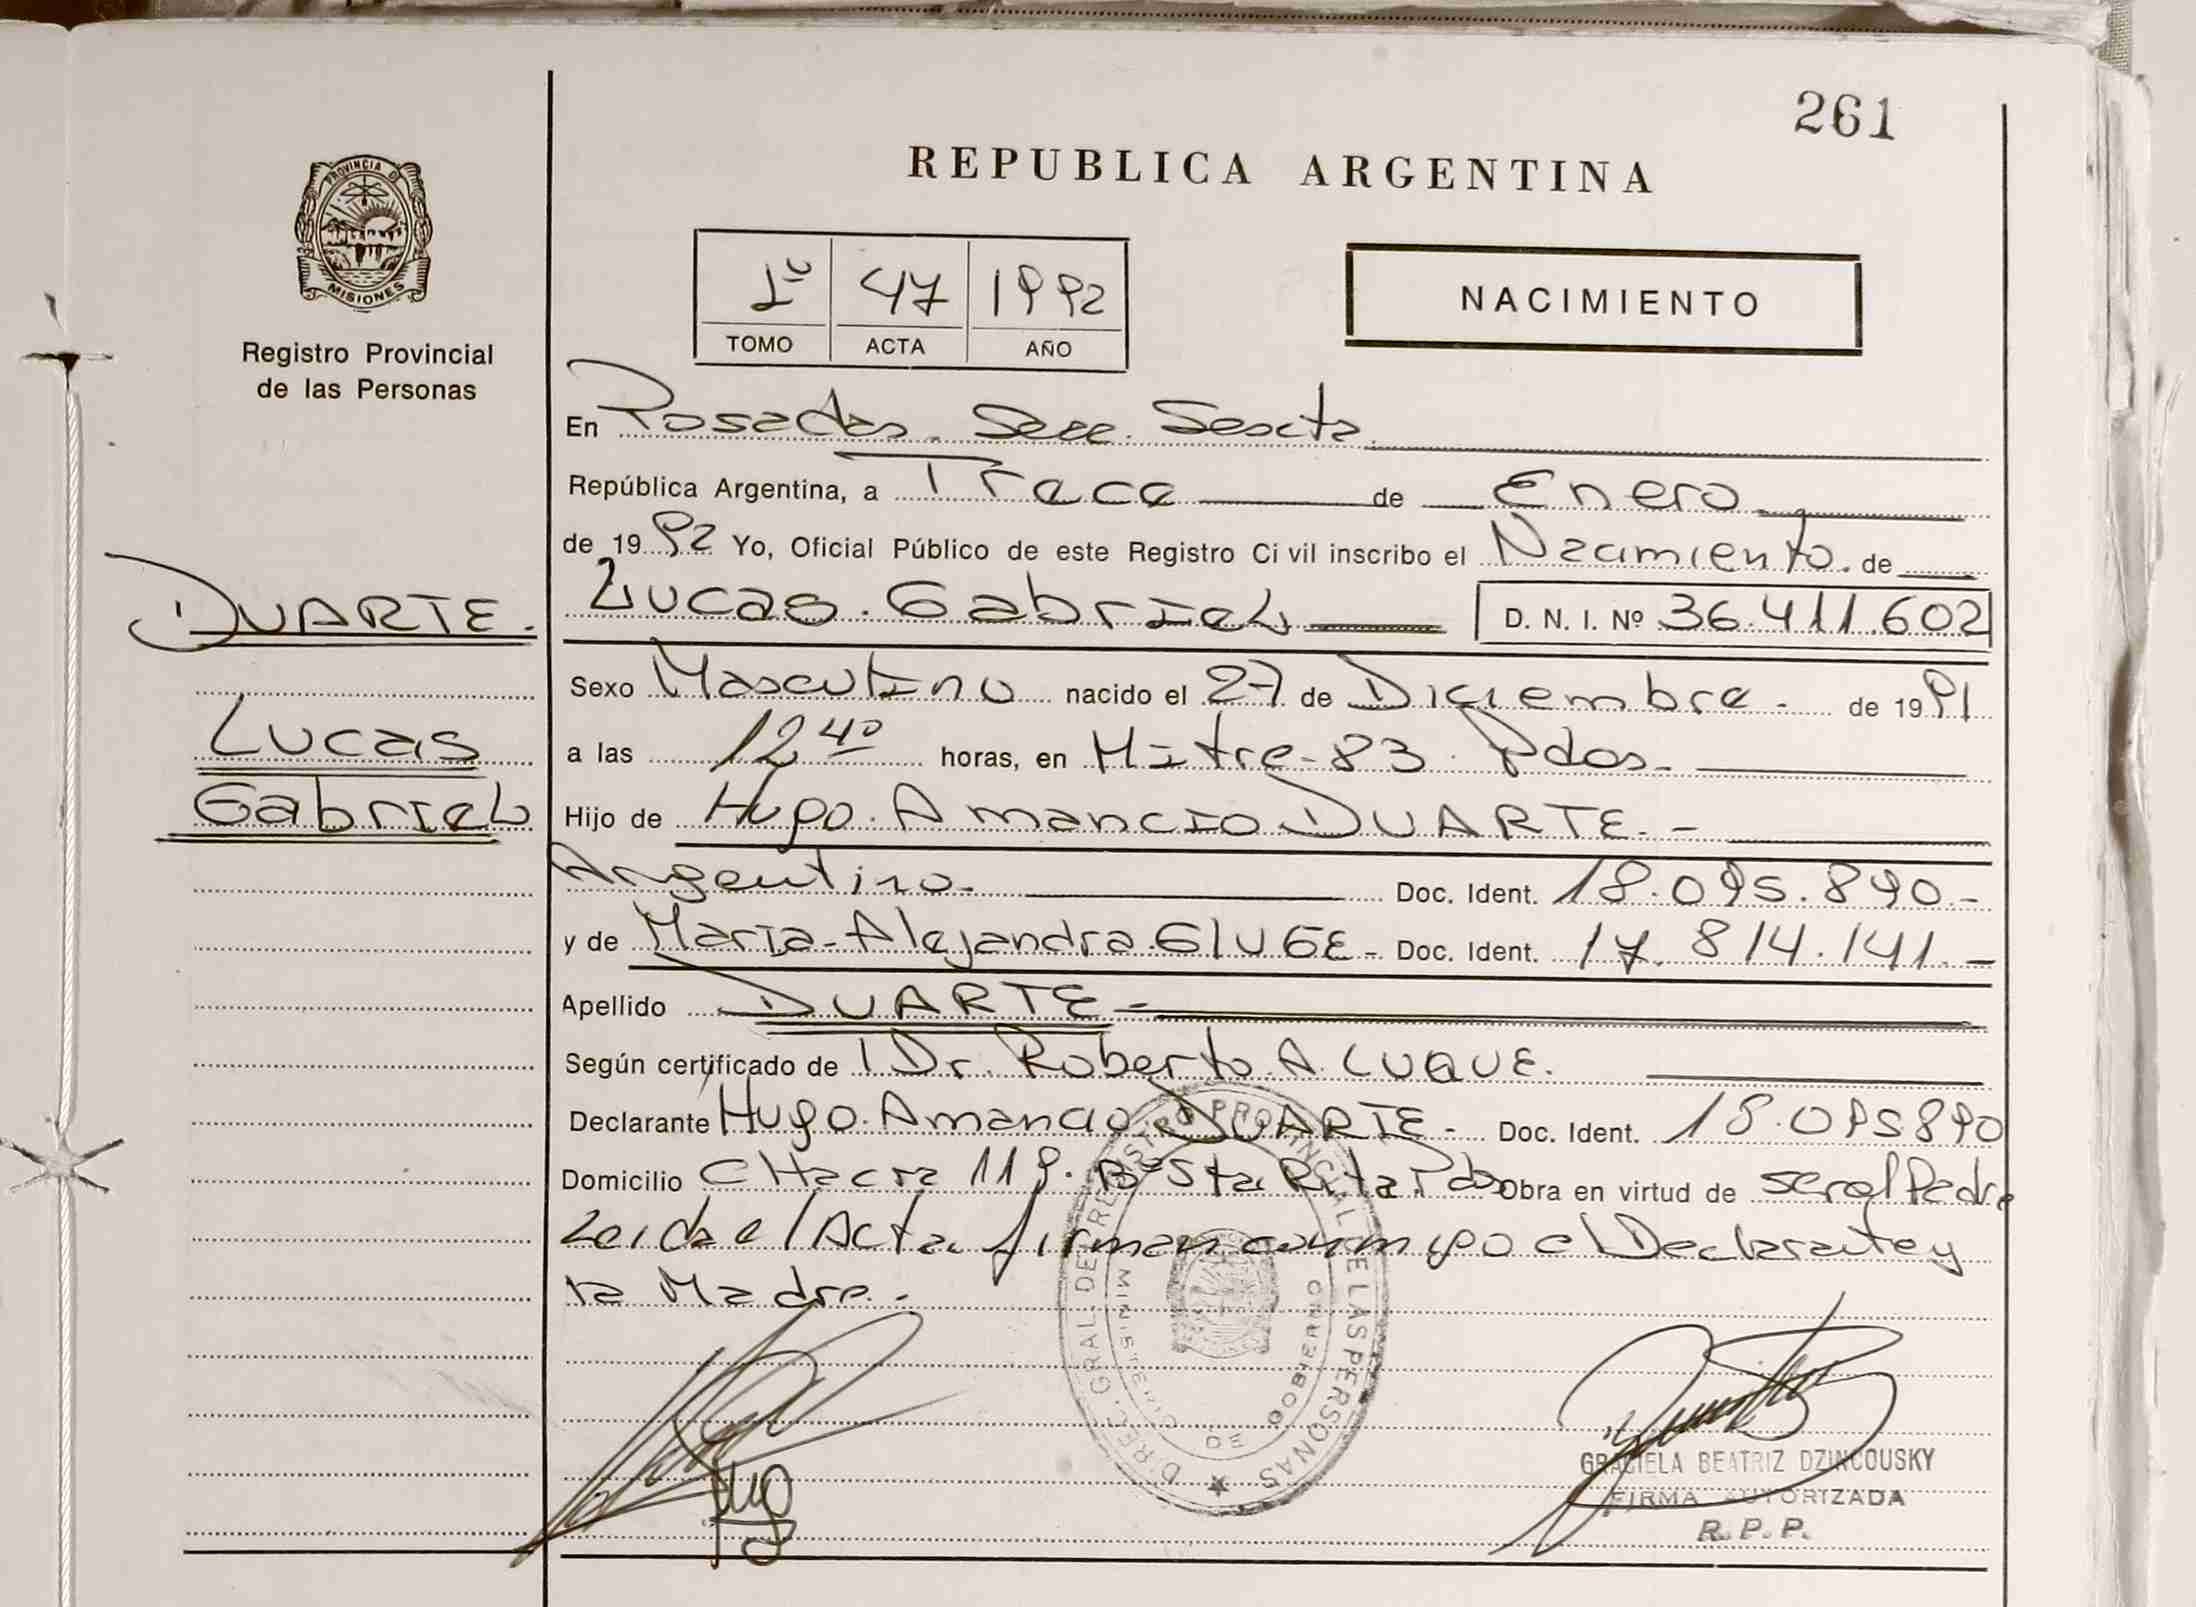 261
REPUBLICA ARGENTINA
PROVINCIA DE
MISIONES
Registro Provincial
de las Personas
1º 47 1992
TOMO ACTA AÑO
NACIMIENTO
En Posadas. Secc. Sexta.
República Argentina, a Trece de Enero
de 1992 Yo, Oficial Público de este Registro Civil inscribo el Nacimiento. de
DUARTE.
Lucas
Gabriel
Lucas. Gabriel D. N. I. Nº 36.411.602
Sexo Masculino nacido el 27 de Diciembre. de 1991
a las 12 40 horas, en Mitre-83. Pdas.
Hijo de Hugo. Amancio DUARTE. -
Argentino. Doc. Ident. 18.095.890.-
y de Maria-Alejandra GLUGE- Doc. Ident. 17.814.141.-
Apellido DUARTE-
Según certificado de l Dr. Roberto A. LUQUE.
Declarante Hugo. Amancio DUARTE- Doc. Ident. 18.095890
Domicilio CHacra 119. Bº Sta Rita Pdas Obra en virtud de ser el Padre
Leida el Acta. firman conmigo el Declarante y
la Madre.-
DIREC. GRAL. DE REGISTRO PROVINCIAL DE LAS PERSONAS
MINISTERIO DE GOBIERNO
GRACIELA BEATRIZ DZINCOUSKY
FIRMA AUTORIZADA
R. P. P.